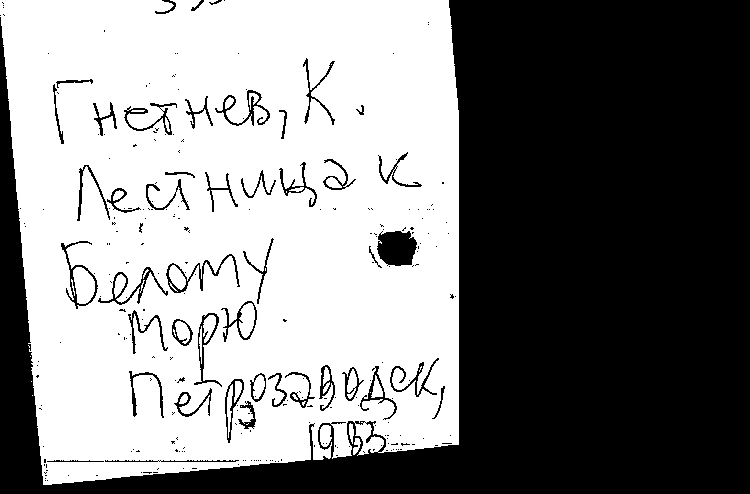 Гнетнев, К.
Лестница к
Белому
морю
Петрозаводск,